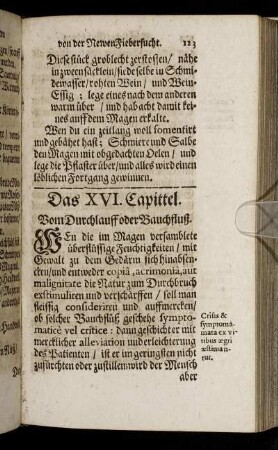 von der Newen Fiebersucht. 123
Diese stück groblecht zerstossen / nähe
in zween säcklein / siede selbe in Schmi-
dewasser / rohten Wein / und Wein-
Essig; lege eines nach dem anderen
warm über / und hab acht damit kei-
nes auff dem Magen erkalte.
Wen du ein zeitlang woll fomentirt
und gebähet hast; Schmiere und Salbe
den Magen mit obgedachten Oelen / und
lege die Pflaster über / und alles wird einen
löblichen Fortgang gewinnen.
Das XVI. Capittel.
Vom Durchlauff oder Bauchfluß.
WEn die im Magen versamblete
überflüssige Feuchtigkeiten / mit
Gewalt zu dem Gedärm sich hinabsen-
cken / und entweder copiâ, acrimoniâ, aut
malignitate die Natur zum Durchbruch
exstimuliren und verschärffen / soll man
fleissig consideriren und auffmercken /
ob solcher Bauchfluß geschehe sympto-
maticè vel criticè: dann geschichter mit
mercklicher alleviation und erleichterung
des Patienten / ist er im geringsten nicht
zufürchten oder zustillen wird der Mensch
aber
Crisis &
symptoma-
mata ex vi-
ribus ægri
æstiman-
tur.